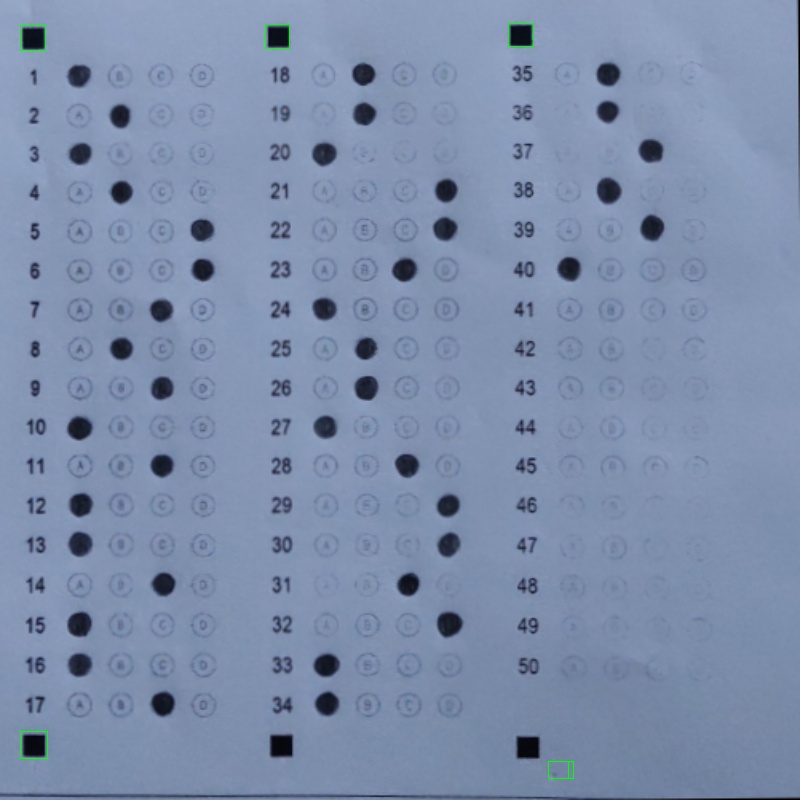 1 B C D
2 A C D
3 B C D
4 A C D
5 A B C
6 A B C
7 A B D
8 A C D
9 A B D
10 B C D
11 A B D
12 B C D
13 B C D
14 A B D
15 B C D
16 B C D
17 A B D
18 A C D
19
20
21 A B C
22 A B C
23 A B D
24 B C D
25 A C D
26 A C D
27 B C D
28 A B D
29 A B C
30 A B C
31
32 A B C
33 B C D
34 B C D
35
36
37
38
39 A B
40 B C D
41 A B C D
42 A B
43 A B C D
44 A B C D
45 A B C D
46
47
48
49
50 A B